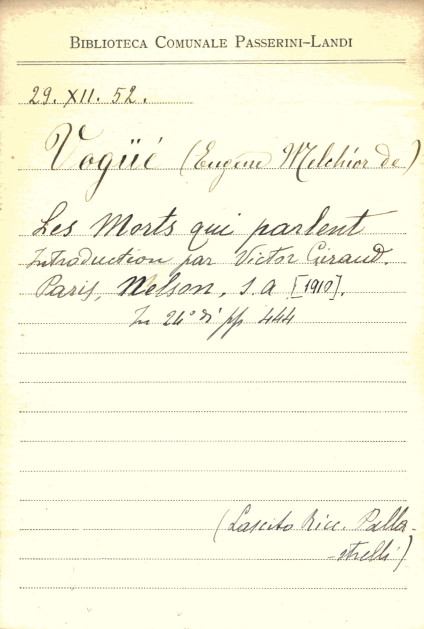 BIBLIOTECA COMUNALE PASSERINI-LANDI
29. XII. 52.
Vogüé (Eugene Melchior de)
Les Morts qui parlent
Introduction par Victor Giraud.
Paris, Nelson, s.a [1910].
In 24° di pp 444
(Lascito Ricc. Palla-
-strelli)